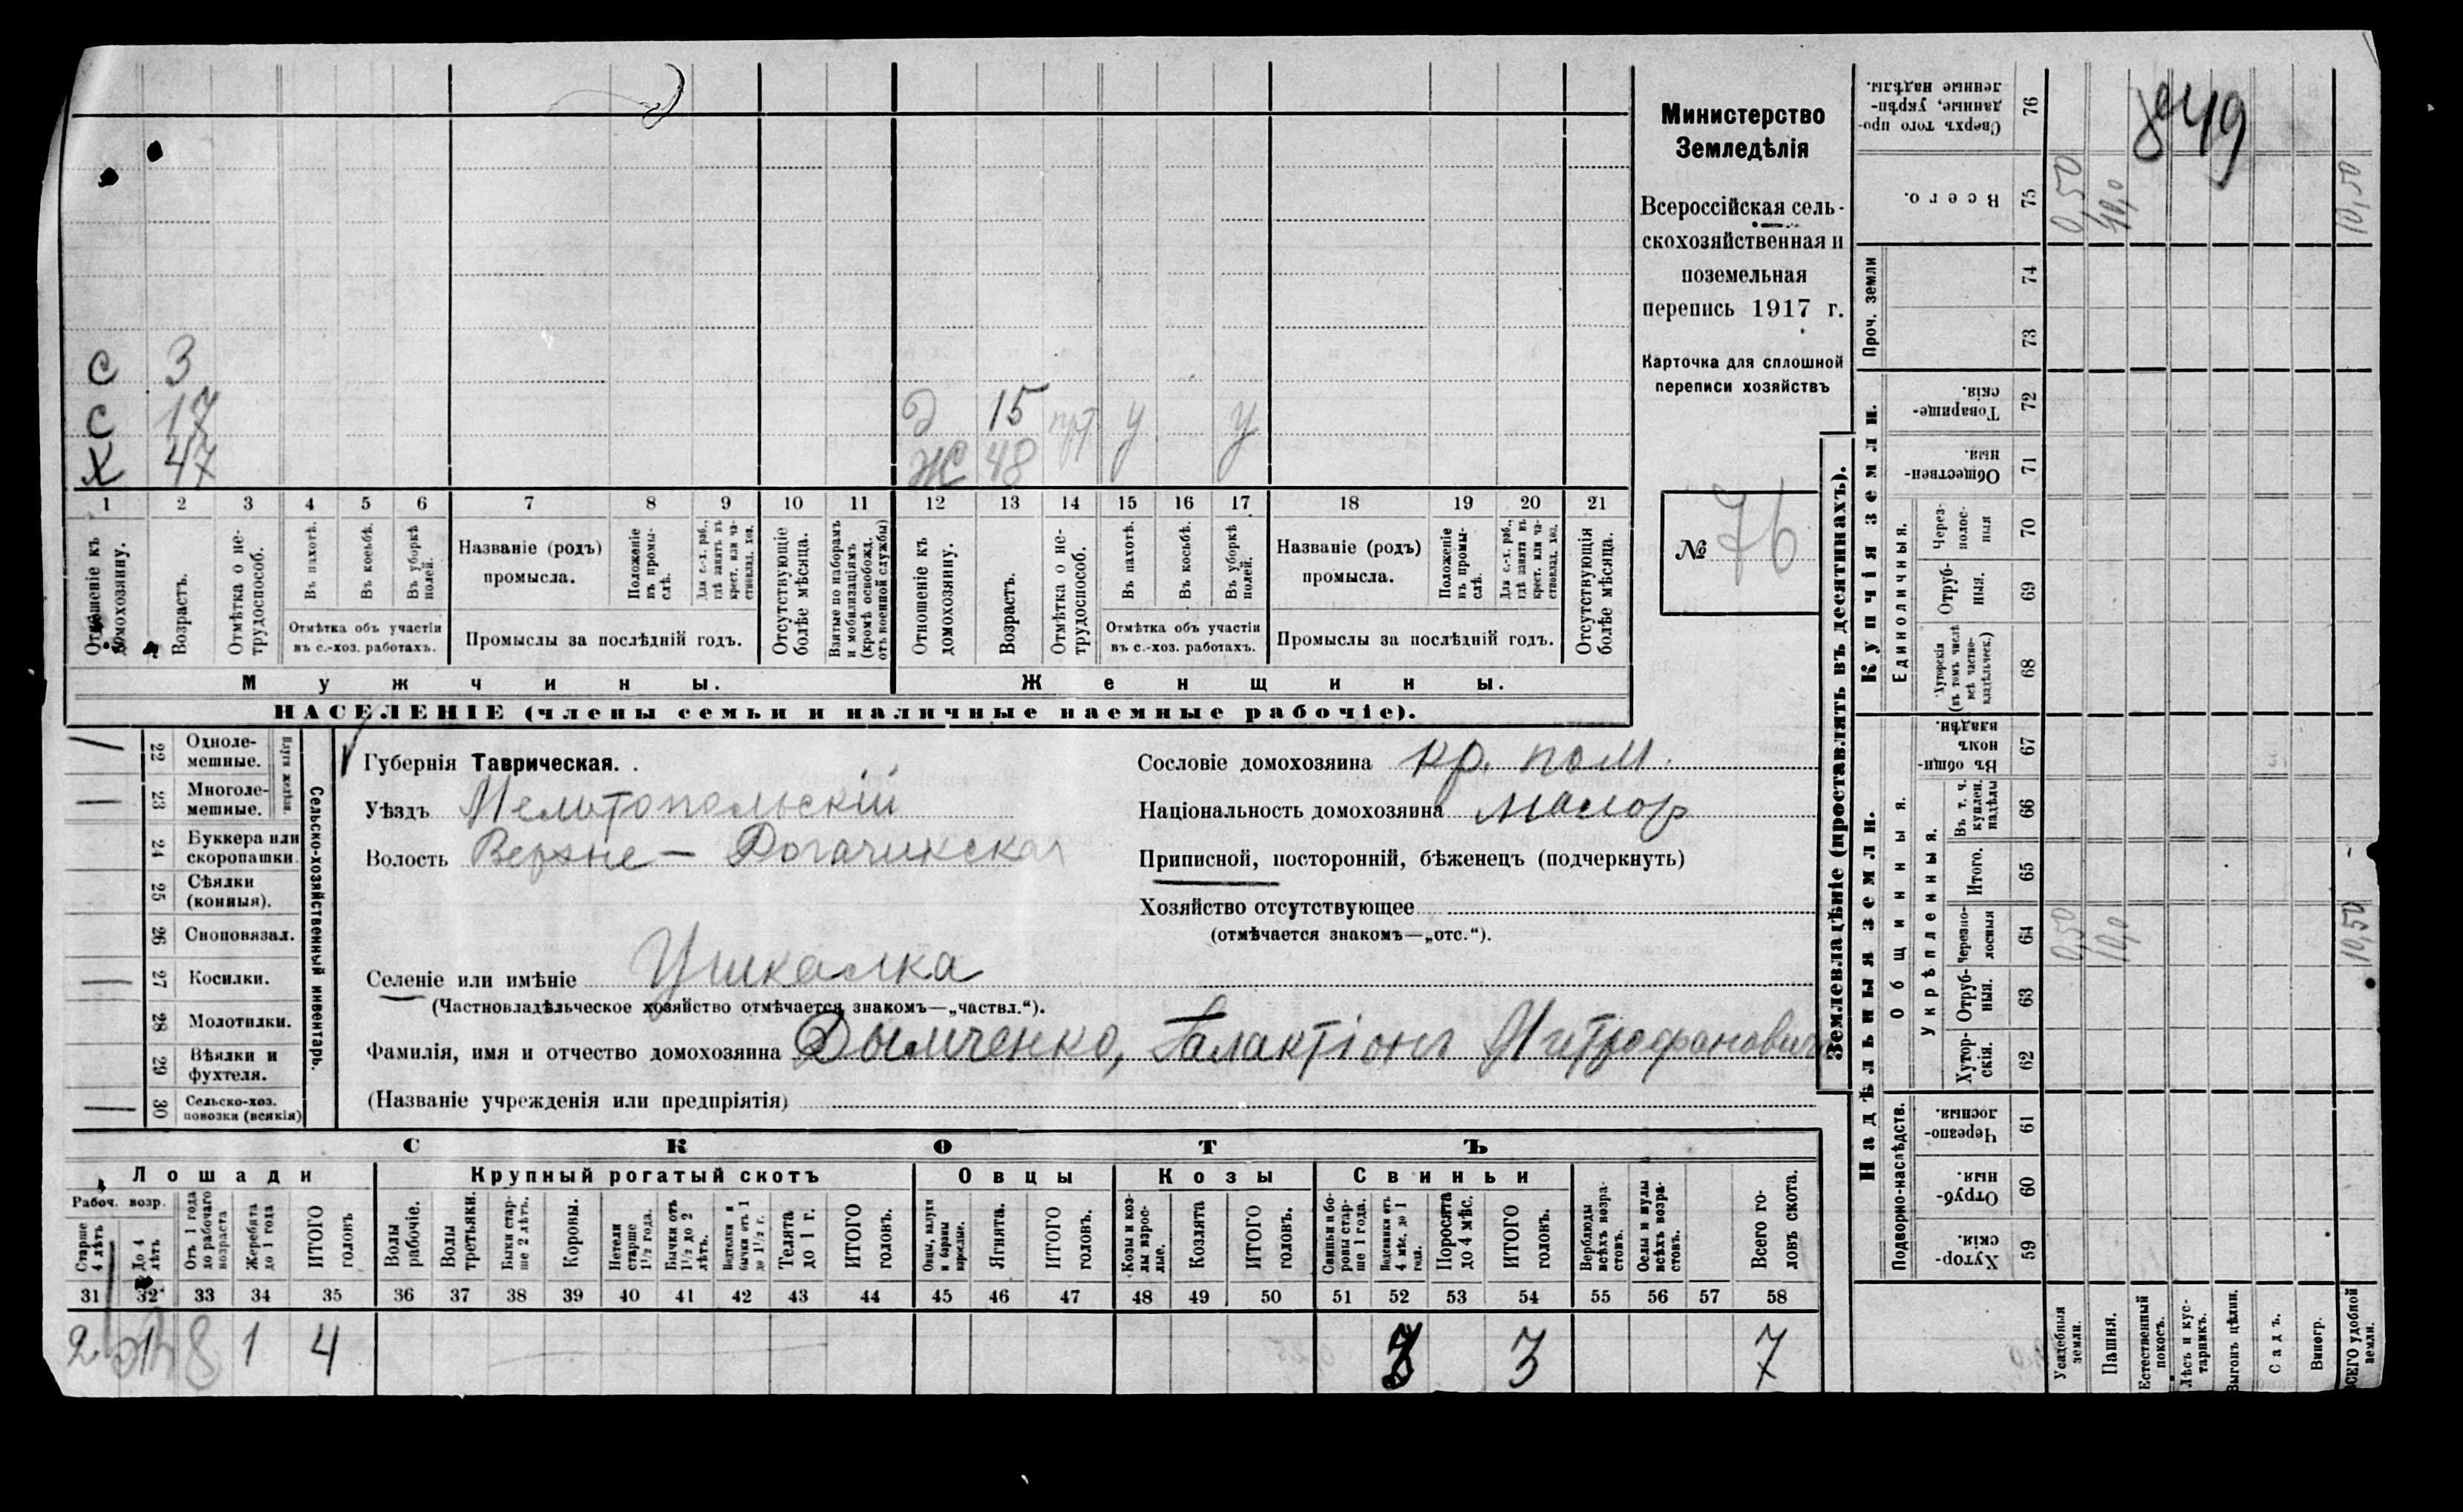 С 3
С 17 Д 15 нрт у у
Х 47 Ж 48
1 2 3 4 5 6 7 8 9 10 11 12 13 14 15 16 17 18 19 20 21
Отношеніе къ домохозяину.
Возрастъ.
Отмѣтка о не-трудоспособ.
Въ пахотѣ.
Въ косьбѣ.
Въ уборкѣ полей.
Отмѣтка объ участіи
въ с.-хоз. работахъ.
Названіе (родъ)
промысла.
Положеніе въ промы-слѣ.
Для с.-х. раб., гдѣ занятъ въ крест. или ча-стновлад. хоз.
Промыслы за послѣдній годъ.
Отсутствующіе болѣе мѣсяца.
Взятые по наборамъ и мобилизаціямъ (кромѣ освобожд. отъ военной службы)
Отношеніе къ домохозяину.
Возрастъ.
Отмѣтка о не-трудоспособ.
Въ пахотѣ.
Въ косьбѣ.
Въ уборкѣ полей.
Отмѣтка объ участіи
въ с.-хоз. работахъ.
Названіе (родъ)
промысла.
Положеніе въ промы-слѣ.
Для с.-х. раб., гдѣ занята въ крест. или ча-стновлад. хоз.
Промыслы за послѣдній годъ.
Отсутствующія болѣе мѣсяца.
Мужчины. Женщины.
НАСЕЛЕНІЕ (члены семьи и наличные наемные рабочіе).
Министерство
Земледѣлія
Всероссійская сель-
скохозяйственная и
поземельная
перепись 1917 г.
Карточка для сплошной
переписи хозяйствъ
№ 76
Сельско-хозяйственный инвентарь.
22 Одноле-мешные.
23 Многоле-мешные.
24 Буккера или скоропашки
25 Сѣялки (конныя).
26 Сноповязал.
27 Косилки.
28 Молотилки.
29 Вѣялки и фухтеля.
30 Сельско-хоз. повозки (всякія)
Губернія Таврическая.
Уѣздъ Мелитопольскій
Волость Верхне-Рогачикская
Сословіе домохозяина кр. пом.
Національность домохозяина малор
Приписной, посторонній, бѣженецъ (подчеркнуть)
Хозяйство отсутствующее
(отмѣчается знакомъ—„отс.“).
Селеніе или имѣніе Ушкалка
(Частновладѣльческое хозяйство отмѣчается знакомъ—„частвл.“).
Фамилія, имя и отчество домохозяина Дымченко, Галактіонъ Митрофанович
(Названіе учрежденія или предпріятія)
СКОТЪ
Лошади Крупный рогатый скотъ Овцы Козы Свиньи
Рабоч. возр.
Старше 4 лѣтъ
До 4 лѣтъ
Отъ 1 года до рабочаго возраста
Жеребята до 1 года
ИТОГО головъ
Волы рабочіе.
Волы третьяки.
Быки стар-ше 2 лѣтъ.
Коровы.
Нетели старше 1½ года.
Бычки отъ 1½ до 2 лѣтъ.
Нетелки и бычки отъ 1 до 1½ г.
Телята до 1 г.
ИТОГО головъ.
Овцы, валухи и бараны взрослые.
Ягнята.
ИТОГО головъ.
Козы и коз-лы взрос-лые.
Козлята
ИТОГО головъ.
Свиньи и бо-ровы стар-ше 1 года.
Подсвинки отъ 4 мѣс. до 1 года.
Поросята до 4 мѣс.
ИТОГО головъ.
Верблюды всѣхъ возра-стовъ.
Ослы и мулы всѣхъ возра-стовъ.
Всего го-ловъ скота.
31 32 33 34 35 36 37 38 39 40 41 42 43 44 45 46 47 48 49 50 51 52 53 54 55 56 57 58
2 1 4 3 3 7
Землевладѣніе (проставлять въ десятинахъ).
Надѣльныя земли. Купчія земли.
Подворно-наслѣдств.
Общинныя.
Укрѣпленныя.
Единоличныя.
Проч. земли
Хутор-скія. 59
Отруб-ныя. 60
Черезпо-лосныя. 61
Хутор-скія. 62
Отруб-ныя. 63
Черезпо-лосныя 64 0,50 10,0 10,50
Итого. 65
Въ т. ч. куплен. надѣлы 66
Въ общи-номъ владѣн. 67
Хуторскія (въ томъ числѣ всѣ частно-владѣльческ.) 68
Отруб-ныя. 69
Через-полос-ныя 70
Обществен-ныя. 71
Товарище-скія. 72
73
74
Всего. 75 0,50 10,0 10,50
Сверхъ того про-данные, укрѣп-ленные надѣлы. 76
Усадебныя земли.
Пашня.
Естественный покосъ.
Лѣсъ и кус-тарникъ.
Выгонъ цѣлин.
Садъ.
Виногр.
ВСЕГО удобной земли.